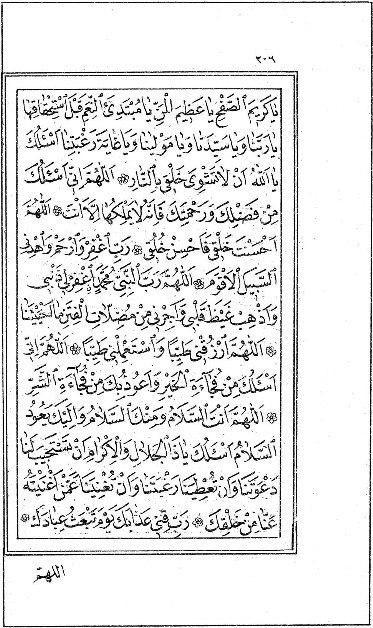 ٣٠٦
يَا كَرِيمَ الصَّفْحِ يَا عَظِيمَ الْمَنِّ يَا مُبْتَدِئَ النِّعَمِ قَبْلَ اسْتِحْقَاقِهَا
يَا رَبَّنَا وَيَا سَيِّدَنَا وَيَا مَوْلٰينَا وَيَا غَايَةَ رَغْبَتِنَا اَسْئَلُكَ
يَا اَللهُ اَنْ لَا تَشْوِىَ خَلْقِى بِالنَّارِ ۞ اَللّٰهُمَّ اِنِّى اَسْئَلُكَ
مِنْ فَضْلِكَ وَرَحْمَتِكَ فَاِنَّهُ لَا يَمْلِكُهَا اِلَّا اَنْتَ ۞ اَللّٰهُمَّ
اَحْسَنْتَ خَلْقِى فَاَحْسِنْ خُلُقِى ۞ رَبِّ اغْفِرْ وَارْحَمْ وَاهْدِنِى
السَّبِيلَ الْاَقْوَمَ ۞ اَللّٰهُمَّ رَبَّ النَّبِىِّ مُحَمَّدٍ اغْفِرْ لِى ذَنْبِى
وَاَذْهِبْ غَيْظَ قَلْبِى وَاَجِرْنِى مِنْ مُضِلَّاتِ الْفِتَنِ مَا اَحْيَيْتَنَا
۞ اَللّٰهُمَّ ارْزُقْنِى طَيِّبًا وَاسْتَعْمِلْنِى طَيِّبًا ۞ اَللّٰهُمَّ اِنِّى
اَسْئَلُكَ مِنْ فُجَاءَةِ الْخَيْرِ وَاَعُوذُ بِكَ مِنْ فُجَاءَةِ الشَّرِّ
۞ اَللّٰهُمَّ اَنْتَ السَّلَامُ وَمِنْكَ السَّلَامُ وَاِلَيْكَ يَعُودُ
السَّلَامُ اَسْئَلُكَ يَا ذَا الْجَلَالِ وَالْاِكْرَامِ اَنْ تَسْتَجِيبَ لَنَا
دَعْوَتَنَا وَاَنْ تُعْطِيَنَا رَغْبَتَنَا وَاَنْ تُغْنِيَنَا عَمَّنْ اَغْنَيْتَهُ
عَنَّا مِنْ خَلْقِكَ ۞ رَبِّ قِنِى عَذَابَكَ يَوْمَ تَبْعَثُ عِبَادَكَ ۞
اللهم